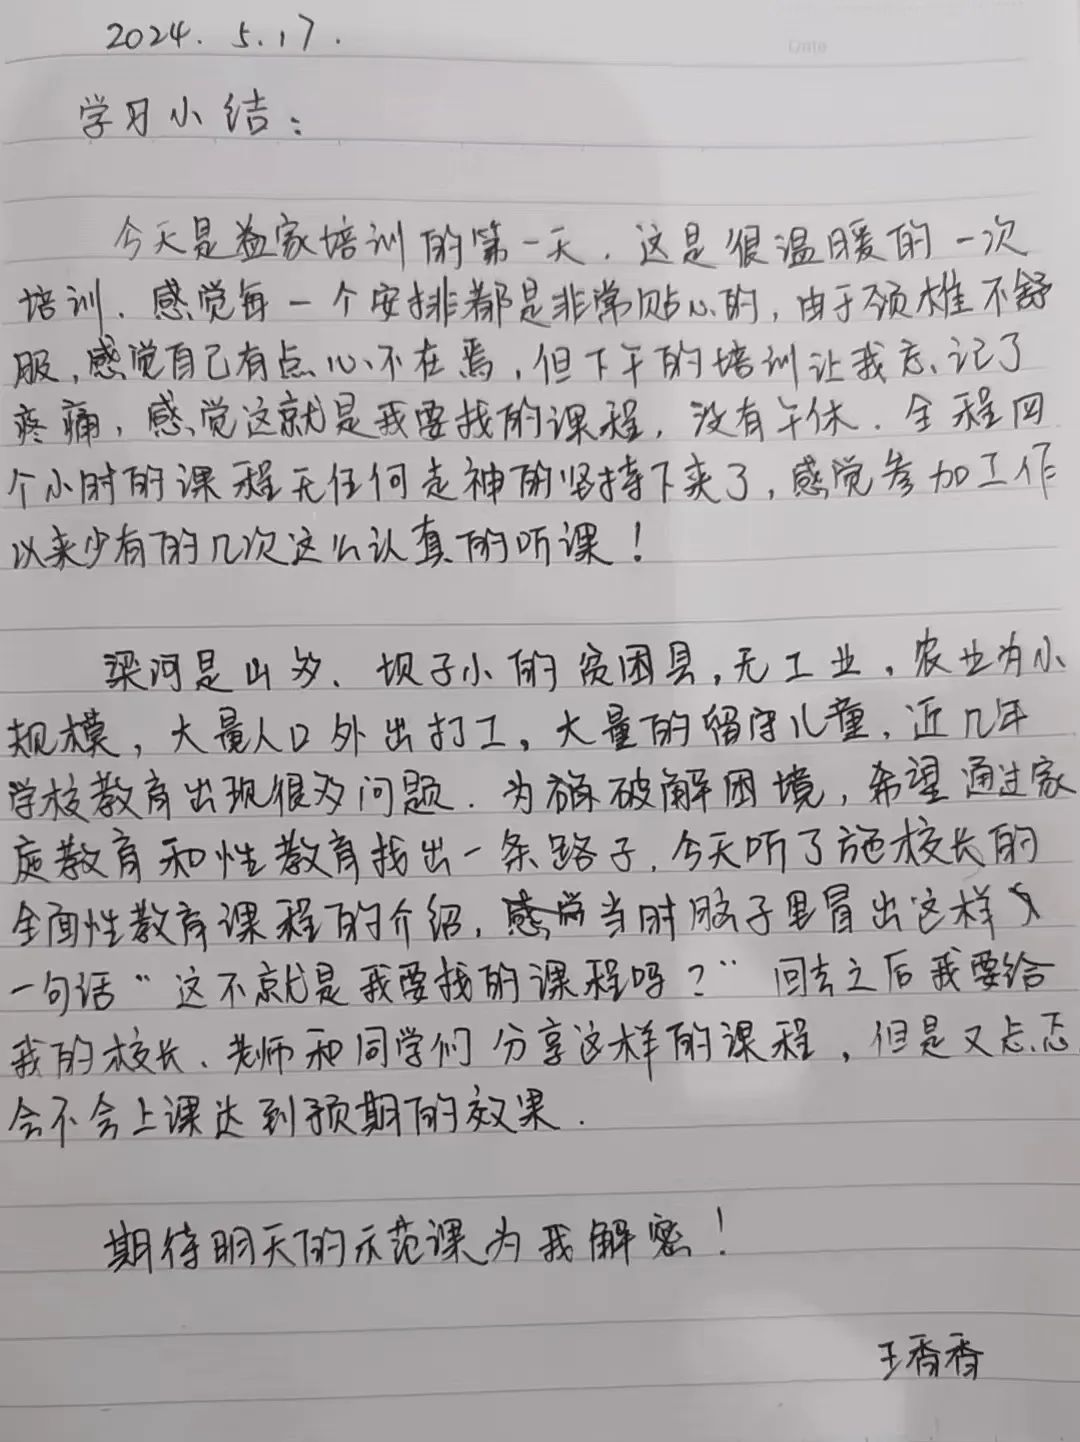 Date
2024.5.17.
学习小结：
今天是益家培训的第一天．这是很温暖的一次
培训．感觉每一个安排都是非常贴心的，由于颈椎不舒
服，感觉自己有点心不在焉，但下午的培训让我忘记了
疼痛，感觉这就是我要找的课程，没有午休．全程四
个小时的课程无任何走神的坚持下来了，感觉参加工作
以来少有的几次这么认真的听课！
梁河是山多、坝子小的贫困县，无工业，农业为小
规模，大量人口外出打工，大量的留守儿童，近几年
学校教育出现很多问题．为破解困境，希望通过家
庭教育和性教育找出一条路子．今天听了施校长的
全面性教育课程的介绍，当时脑子里冒出这样
一句话“这不就是我要找的课程吗？”回去之后我要给
我的校长、老师和同学们分享这样的课程，但是又忐忑
会不会上课达到预期的效果．
期待明天的示范课为我解密！
王香香